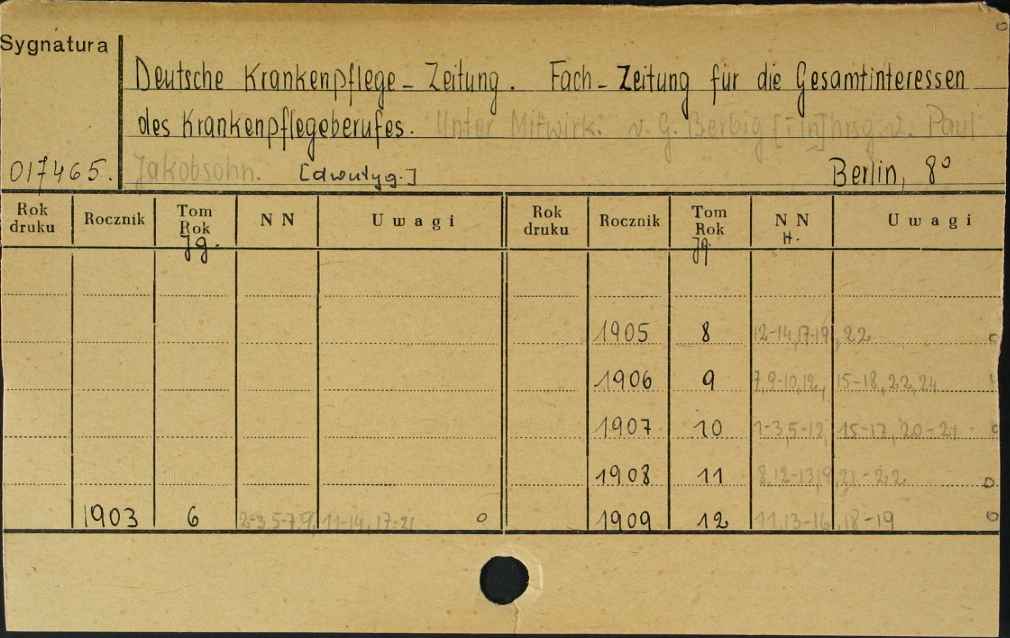 Sygnatura
Deutsche Krankenpflege - Zeitung. Fach - Zeitung für die Gesamtinteressen
des Krankenpflegeberufes. Unter Mitwirk. v. G. Berbig [-In] hrsg. v. Paul
017465. Jakobsohn. [dwutyg.] Berlin, 8º
Rok druku Rocznik Tom Rok Jg. N N Uwagi Rok druku Rocznik Tom Rok Jg. N N H. Uwagi
1905 8 12-14,17-19,22 o
1906 9 7,9-10,12, 15-18,22,24
1907 10 2-3,5-12, 15-17, 20-21 o
1908 11 8,12-13,19,21-22 o
1903 6 2-3,5-7,9,11-14,17-21 o 1909 12 11,13-16,18-19 o